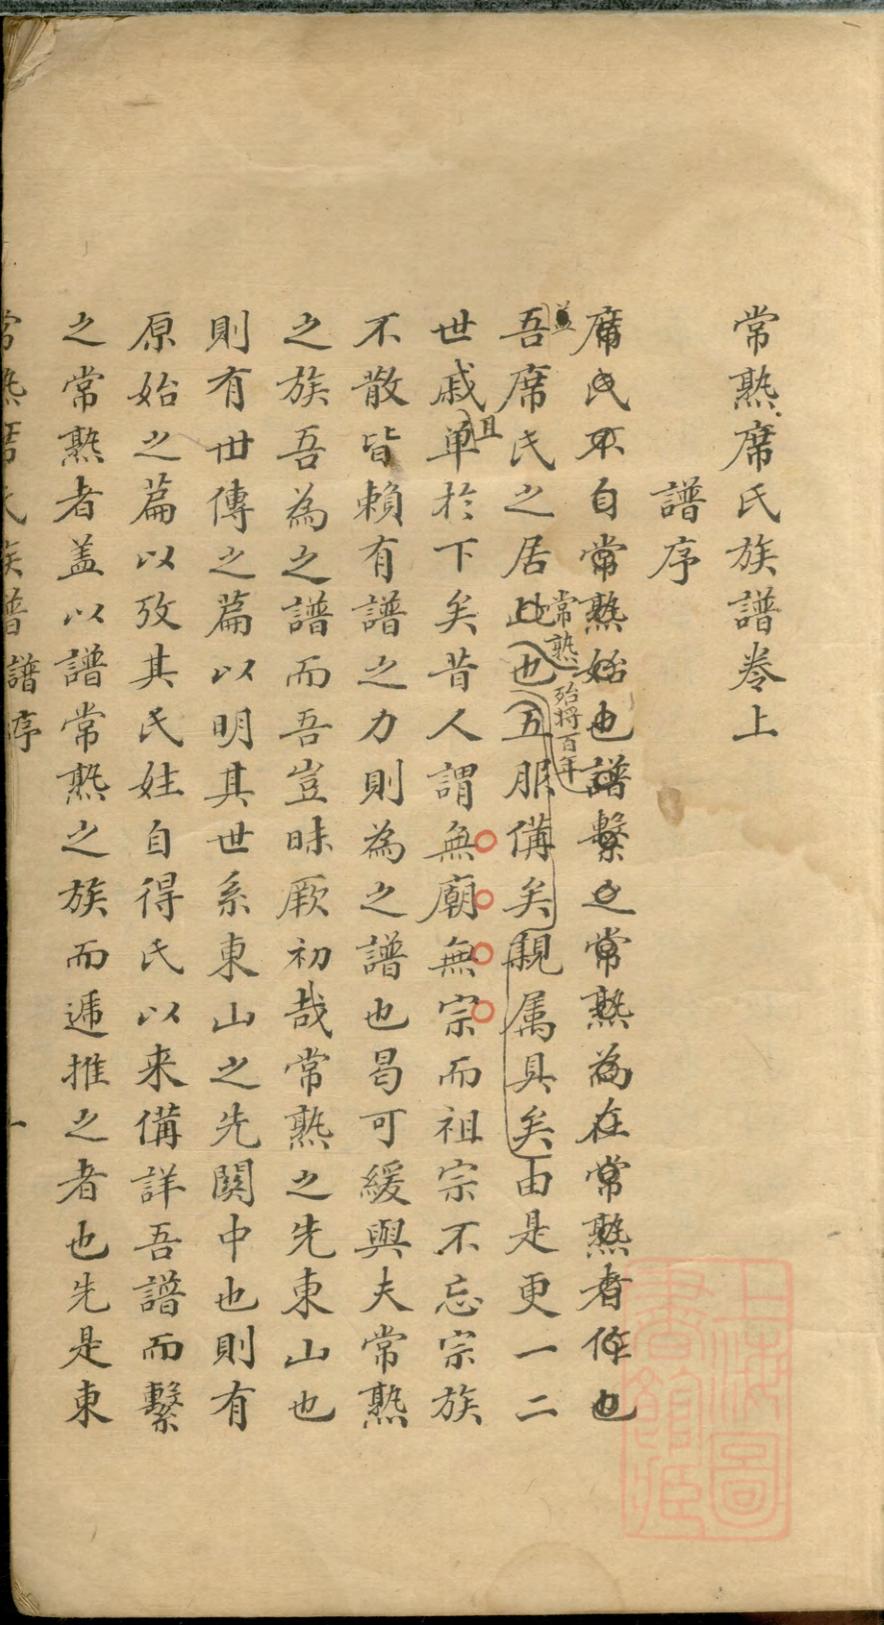 常熟席氏族譜卷上
譜序
席氏不自常熟始也譜繫之常熟為在常熟者作也
蓋
吾席氏之居此也五服備矣親属具矣由是更一二
常熟
殆将百年
世戚单於下矣昔人謂無廟無宗而祖宗不忘宗族
且
不散皆賴有譜之力則為之譜也曷可緩與夫常熟
之族吾為之譜而吾豈昧厥初哉常熟之先東山也
則有世傳之篇以明其世系東山之先関中也則有
原始之篇以攷其氏姓自得氏以来備詳吾譜而繫
之常熟者盖以譜常熟之族而遞推之者也先是東
常熟席氏族譜 譜序 一
上海圖書館藏